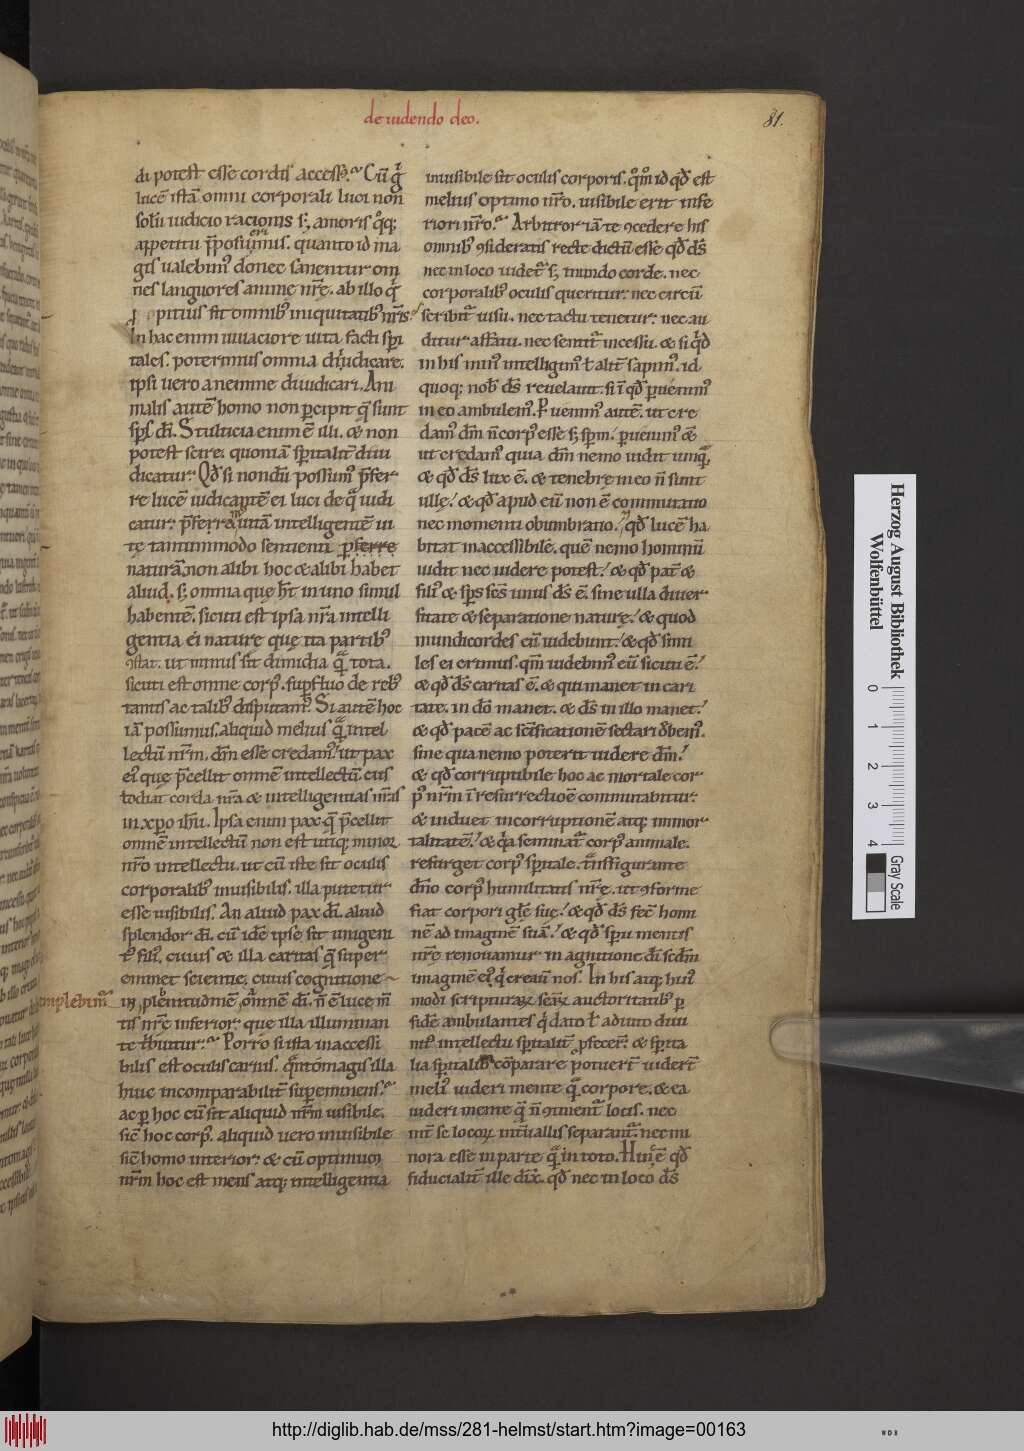 de uidendo deo.
81.
di potest esse cordis accessꝰ. Cū g̊
lucē istā omni corporali luci non
solū iudicio racionis s; amoris q̊q;
appetitu p̄posuerimus. quanto id ma
gis ualebimꝰ donec sanentur om
nes languores anime nr̄ę. ab illo q
pitius fit omnibꝰ iniquitatibꝰ nr̄is.
In hac enim uiuaciore uita facti spi
tales. poterimus omnia diiudicare.
ipsi uero a nemine diiudicari. Ani
malis autē homo non ꝑcipit q̄ sunt
sp̄s dī. Stulticia enim ē illi. & non
potest scire. quoniā spiritalit̄ diiu
dicatur. Qd̄ si nondū possumꝰ p̄fer
re lucē iudicantē ei luci de qua iudi
catur. p̄ferre uitā intelligentē ui
tę tantummodo sentienti p̄ferre
naturā non alibi hoc & alibi habet
aliud. s; omnia que ht̄ in uno simul
habentē. sicuti est ipsa nr̄a intelli
gentia ei nature quę ita partibꝰ
ꝯstat. ut minus sit dimidia quā tota.
sicuti est omne corpꝰ. supfluo de rebꝰ
tantis ac talibꝰ disputamꝰ. Si autē hoc
iā possumus. aliquid melius quā intel
lectū nr̄m. dm̄ esse credamꝰ. ut pax
eiꝰ quę p̄cellit omnē intellectū. cus
todiat corda nr̄a & intelligentias nr̄as
in xp̄o ihū. Ipsa enim pax q̄ p̄cellit
omnē intellectū non est utiq; minor
nr̄o intellectu. ut cū iste sit oculis
corporalibꝰ inuisibilis. illa putetur
esse uisibilis. An aliud pax dī. aliud
splendor dī. cū idē ipse sit unigeni
tꝰ filiꝰ. cuius & illa caritas q̄ super
eminet scientię. cuius cognitione
implebimꝰ
in plenitudinē omnē dī. n̄ ē luce m̄
tis nr̄ę inferior. que illa illuminan
te tribuitur. Porro si ista inaccessi
bilis est oculis carnis. quantomagis illa
huic incomparabilit̄ supeminens.
ac ꝑ hoc cū sit aliquid nr̄m uisibile.
sic̄ hoc corpꝰ. aliquid uero inuisibile
sic̄ homo interior. & cū optimum
nr̄m hoc est mens atq; intelligentia
inuisibile sit oculis corporis. quom̄ id qd̄ est
melius optimo nr̄o. uisibile erit infe
riori nr̄o. Arbitror iā te ꝯcedere his
omnibꝰ ꝯsideratis recte dictū esse qd̄ ds̄
nec in loco uidet̄ s; mundo corde. nec
corporalibꝰ oculis queritur. nec circū
scribit̄ uisu. nec tactu tenetur. nec au
ditur affatu. nec sentit̄ incessu. & si qd̄
in his minꝰ intelligimꝰ ł alit̄ sapimꝰ. id
quoq; nob̄ ds̄ reuelauit. si ī qd̄ ꝑuenimꝰ
in eo ambulemꝰ. Ꝑuenimꝰ autē. ut cre
damꝰ dm̄ n̄ corpꝰ esse s; spm̄. ꝑuenimꝰ &
ut credamꝰ quia dm̄ nemo uidit unquā
& qd̄ ds̄ lux ē. & tenebrę in eo n̄ sunt
ullę. & qd̄ apud eū non ē commutatio
nec momenti obumbratio. qd̄ lucē ha
bitat inaccessibilē. quē nemo hominū
uidit nec uidere potest. & qd̄ pat̄ &
filiꝰ & sp̄s sc̄s unus ds̄ ē. sine ulla diuer
sitate & separatione naturę. & quod
mundicordes eū uidebunt. & qd̄ simi
les ei erimus. qm̄ uidebimꝰ eū sicuti ē.
& qd̄ ds̄ caritas ē. & qui manet in cari
tate. in dō manet. & ds̄ in illo manet.
& qd̄ pacē ac sc̄ificationē sectari debemꝰ.
sine qua nemo poterit uidere dm̄.
& qd̄ corruptibile hoc ac mortale cor
pꝰ nr̄m ī resurrectiōe commutabitur.
& induet incorruptionē atq; immor
talitatē. & q̊a seminat̄ corpꝰ animale.
resurget corpꝰ spiritale. transfigurante
dn̄o corpꝰ humilitatis nr̄ę. ut ꝯforme
fiat corpori glę suę. & qd̄ ds̄ fec̄ homi
nē ad imaginē suā. & qd̄ spu mentis
nr̄ę renouamur in agnitione dī scdm̄
imaginē eiꝰ q creauit nos. In his atq; huiꝰ
modi scripturaꝝ scaꝝ auctoritatibꝰ ꝑ
fidē ambulantes q dato ł adiuto diui
nitꝰ intellectu spiritalit̄ ꝓfecer̄. & spirita
lia spiritalibꝰ cōparare potuer̄. uider̄
meliꝰ uideri mente quā corpore. & ea
uideri mente q̄ n̄ ꝯtinent̄ locis. nec
int̄ se locoꝝ int̄uallis separant̄. nec mi
nora esse in parte quā in toto. Hinc ē qd̄
fiducialit̄ ille dix̄. qd̄ nec in loco ds̄
Herzog August Bibliothek
Wolfenbüttel
0 1 2 3 4
Gray Scale
http://diglib.hab.de/mss/281-helmst/start.htm?image=00163
WDB